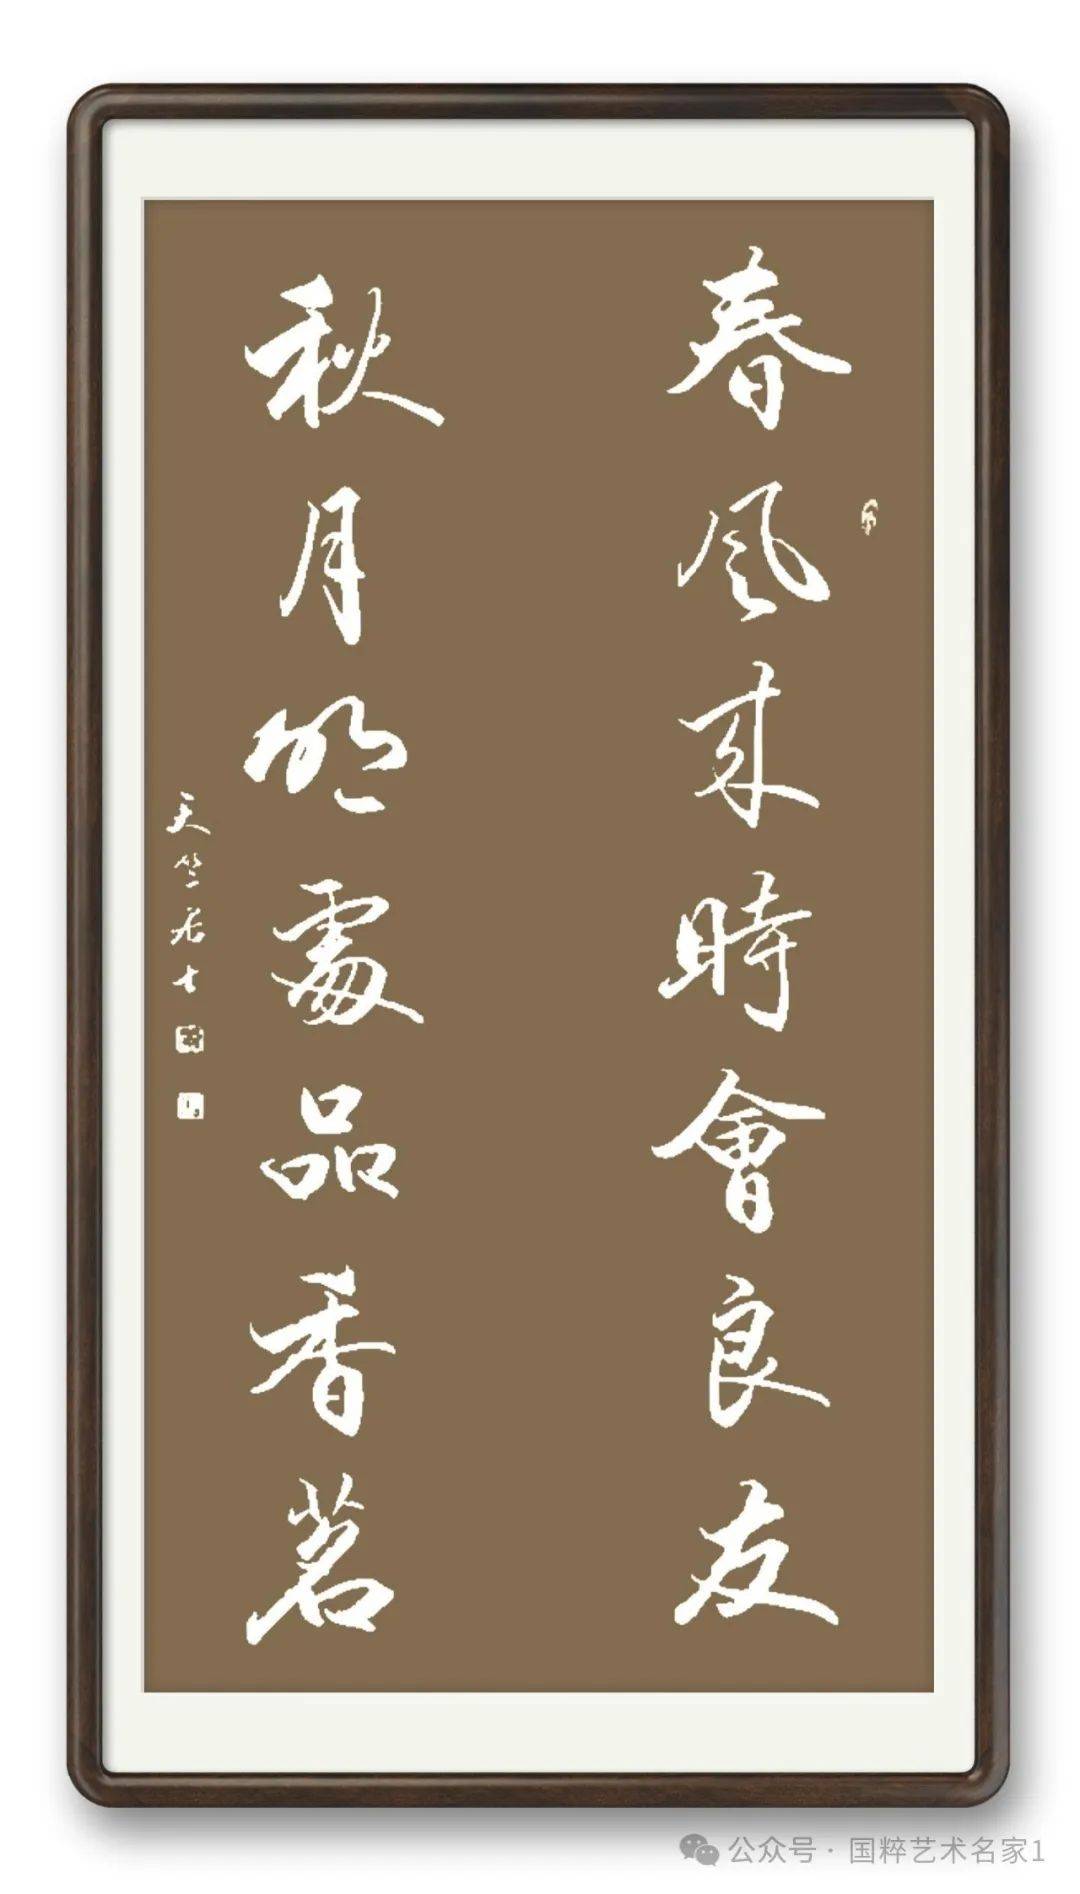 春風来時會良友
秋月明處品香茗
天竺居士
公众号·国粹艺术名家1